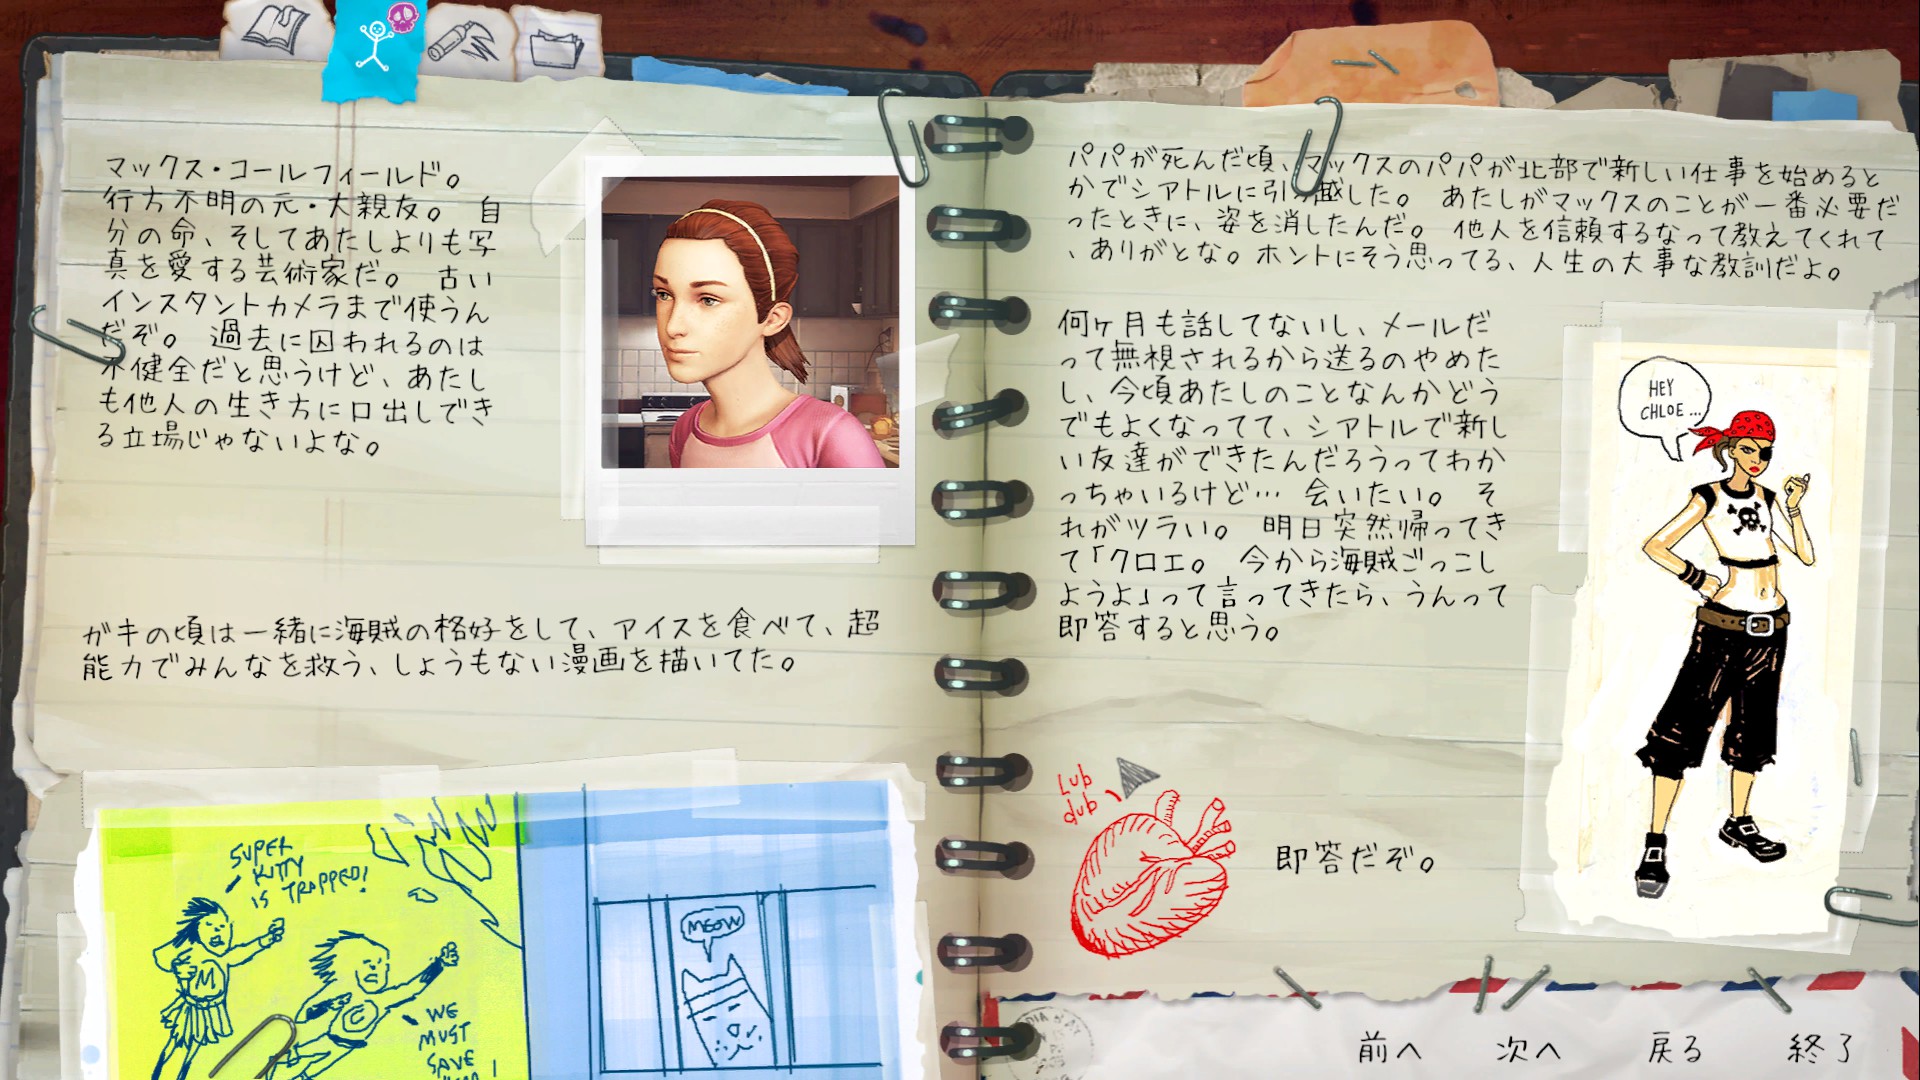 マックス・コールフィールド。
行方不明の元・大親友。 自
分の命、そしてあたしよりも写
真を愛する芸術家だ。 古い
インスタントカメラまで使うん
だぞ。 過去に囚われるのは
不健全だと思うけど、あたし
も他人の生き方に口出しでき
る立場じゃないよな。
ガキの頃は一緒に海賊の格好をして、アイスを食べて、超
能力でみんなを救う、しょうもない漫画を描いてた。
SUPER
KITTY
IS TRAPPED!
M
C
WE
MUST
SAVE
MEOW
パパが死んだ頃、マックスのパパが北部で新しい仕事を始めると
かでシアトルに引っ越した。 あたしがマックスのことが一番必要だ
ったときに、姿を消したんだ。 他人を信頼するなって教えてくれて
、ありがとな。ホントにそう思ってる、人生の大事な教訓だよ。
何ヶ月も話してないし、メールだ
って無視されるから送るのやめた
し、今頃あたしのことなんかどう
でもよくなってて、シアトルで新し
い友達ができたんだろうってわか
っちゃいるけど… 会いたい。 そ
れがツラい。 明日突然帰ってき
て「クロエ。 今から海賊ごっこし
ようよ」って言ってきたら、うんって
即答すると思う。
HEY
CHLOE...
Lub
dub
即答だぞ。
前へ 次へ 戻る 終了